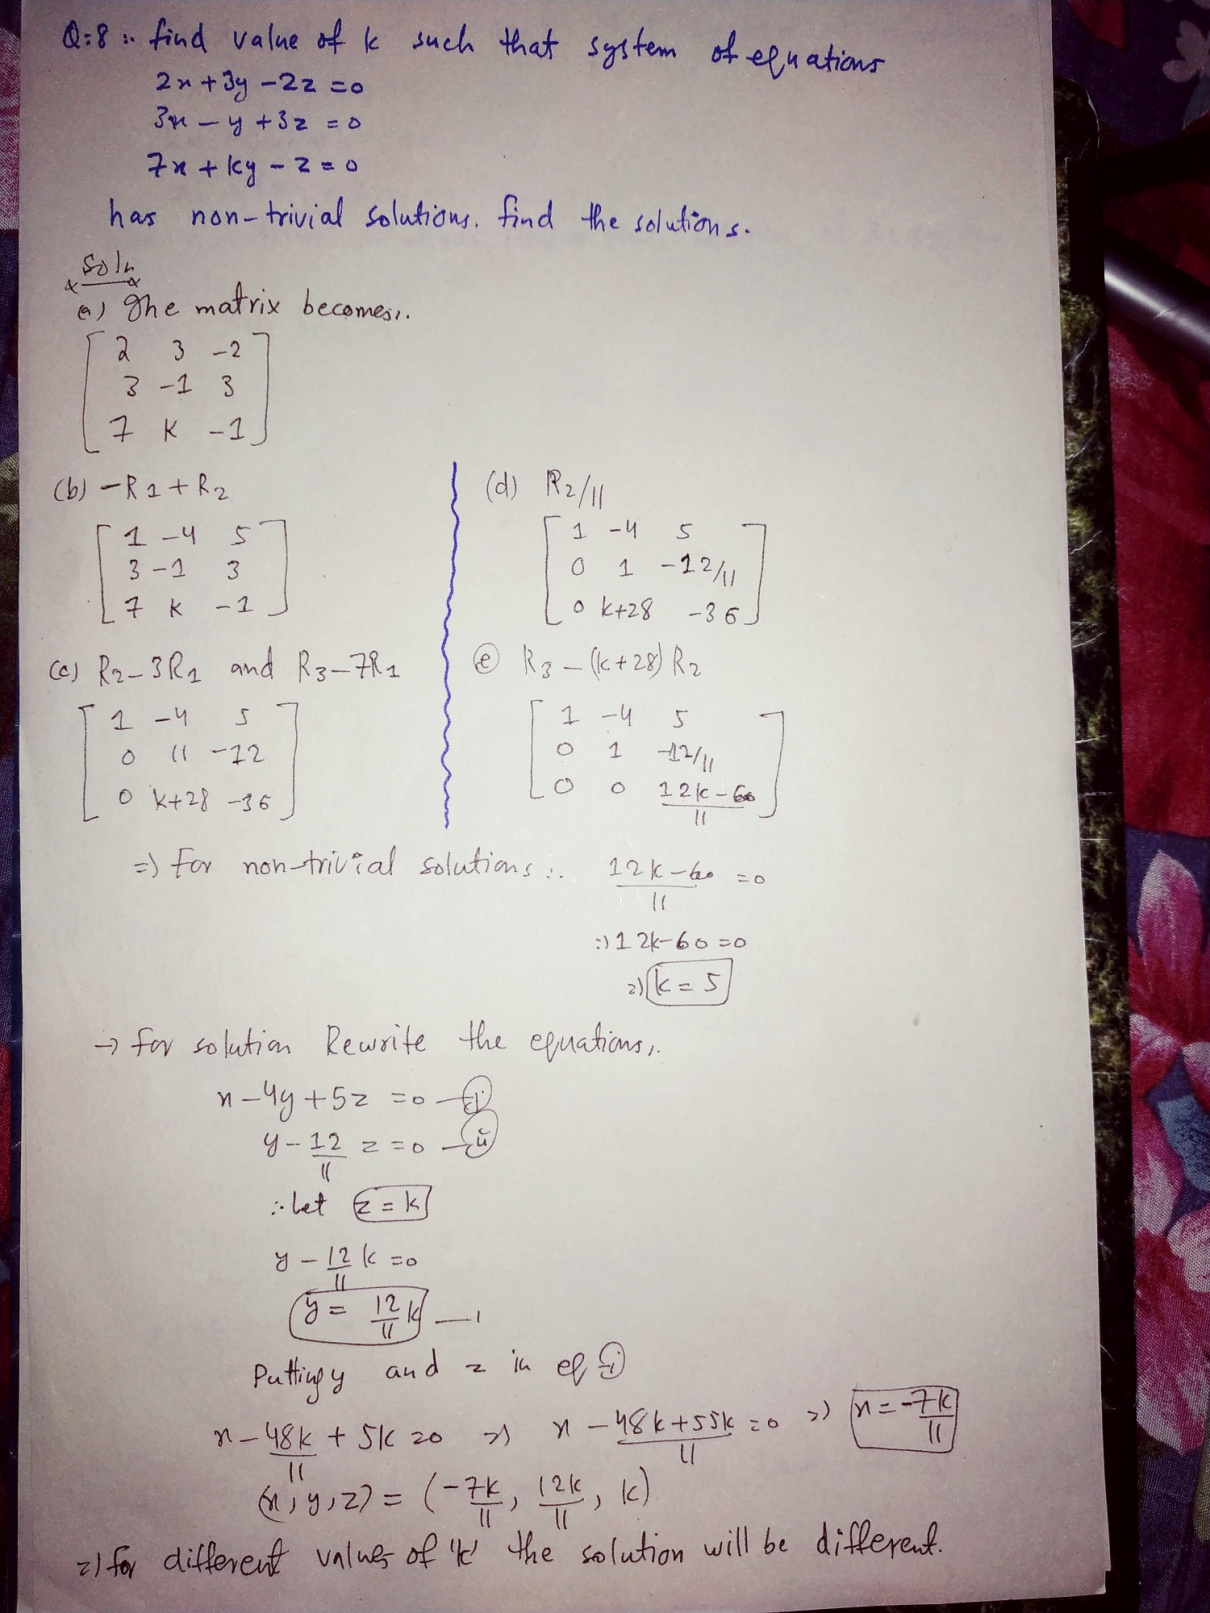 Q:8 :. find value of k such that system of equations
2x+3y-2z=0
3x-y+3z=0
7x+ky-z=0
has non-trivial solutions. find the solutions.
Soln
(a) The matrix becomes,.
2 3 -2
3 -1 3
7 K -1
(b) -R1+R2
1 -4 5
3 -1 3
7 K -1
(c) R2-3R1 and R3-7R1
1 -4 5
0 11 -12
0 k+28 -36
(d) R2/11
1 -4 5
0 1 -12/11
0 k+28 -36
(e) R3-(k+28)R2
1 -4 5
0 1 -12/11
0 0 12k-60/11
=) For non-trivial solutions :. 12k-60/11 =0
=) 12k-60=0
=) k=5
→ for solution Rewrite the equations,.
x-4y+5z=0 - (i)
y-12/11 z=0 - (ii)
:. Let z=k
y-12/11 k=0
y= 12/11 k
Putting y and z in eq (i)
x-48k/11 + 5k=0 =) x -48k+55k/11 =0 =) x=-7k/11
(x,y,z) = (-7k/11, 12k/11, k)
=) for different values of 'k' the solution will be different.